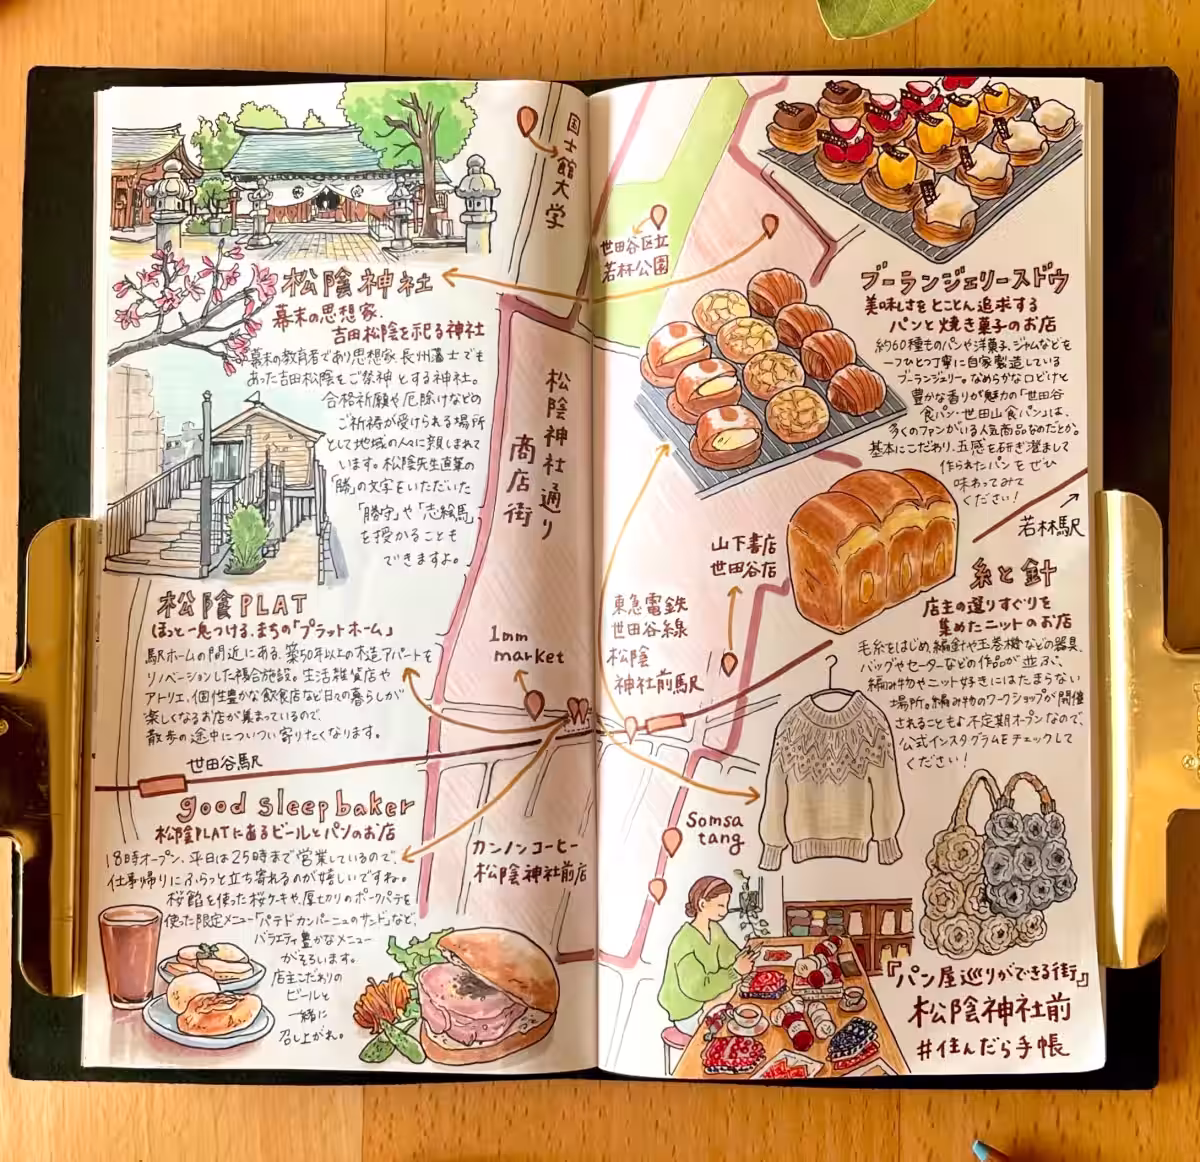 国士館大学
世田谷区立
若林公園
松陰神社
幕末の思想家、
吉田松陰を祀る神社
幕末の教育者であり思想家、長州藩士でも
あった吉田松陰をご祭神とする神社。
合格祈願や厄除けなどの
ご祈祷が受けられる場所
として地域の人に親しまれて
います。松陰先生直筆の
「勝」の文字をいただいた
「勝守」や「志絵馬」
を授かることも
できますよ。
松陰神社通り
商店街
松陰PLAT
ほっと一息つける、まちの「プラットホーム」
駅ホームの間近にある、築50年以上の木造アパートを
リノベーションした複合施設。生活雑貨店や
アトリエ、個性豊かな飲食店など日々の暮らしが
楽しくなるお店が集まっているので、
散歩の途中についつい寄りたくなります。
1mm
market
世田谷駅
good sleep baker
松陰PLATにあるビールとパンのお店
18時オープン、平日は25時まで営業しているので、
仕事帰りにふらっと立ち寄れるのが嬉しいですね。
桜餡を使った桜ケーキや、厚切りのポークパテを
使った限定メニュー「パテドカンパーニュのサンド」など、
バラエティ豊かなメニュー
がそろいます。
店主こだわりの
ビールと
一緒に
召し上がれ。
カンノンコーヒー
松陰神社前店
ブーランジェリースドウ
美味しさをとことん追求する
パンと焼き菓子のお店
約60種ものパンや洋菓子、ジャムなどを
一つひとつ丁寧に自家製造している
ブーランジェリー。なめらかな口どけと
豊かな香りが魅力の「世田谷
食パン・世田山食パン」は、
多くのファンがいる人気商品なのだとか。
基本にこだわり、五感を研ぎ澄まして
作られたパンをぜひ
味わってみて
ください!
若林駅
山下書店
世田谷店
東急電鉄
世田谷線
松陰
神社前駅
糸と針
店主の選りすぐりを
集めたニットのお店
毛糸をはじめ、編針や玉巻機などの器具、
バッグやセーターなどの作品が並ぶ、
編み物やニット好きにはたまらない
場所。編み物のワークショップが開催
されることも♪不定期オープンなので、
公式インスタグラムをチェックして
ください!
Somsa
tang
『パン屋巡りができる街』
松陰神社前
#住んだら手帳